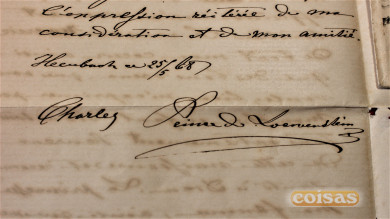 l'expression réitérée de ma
considération et de mon amitié.
Heubach ce 25/5 68
Charles Prince de Loewenstein
coisas